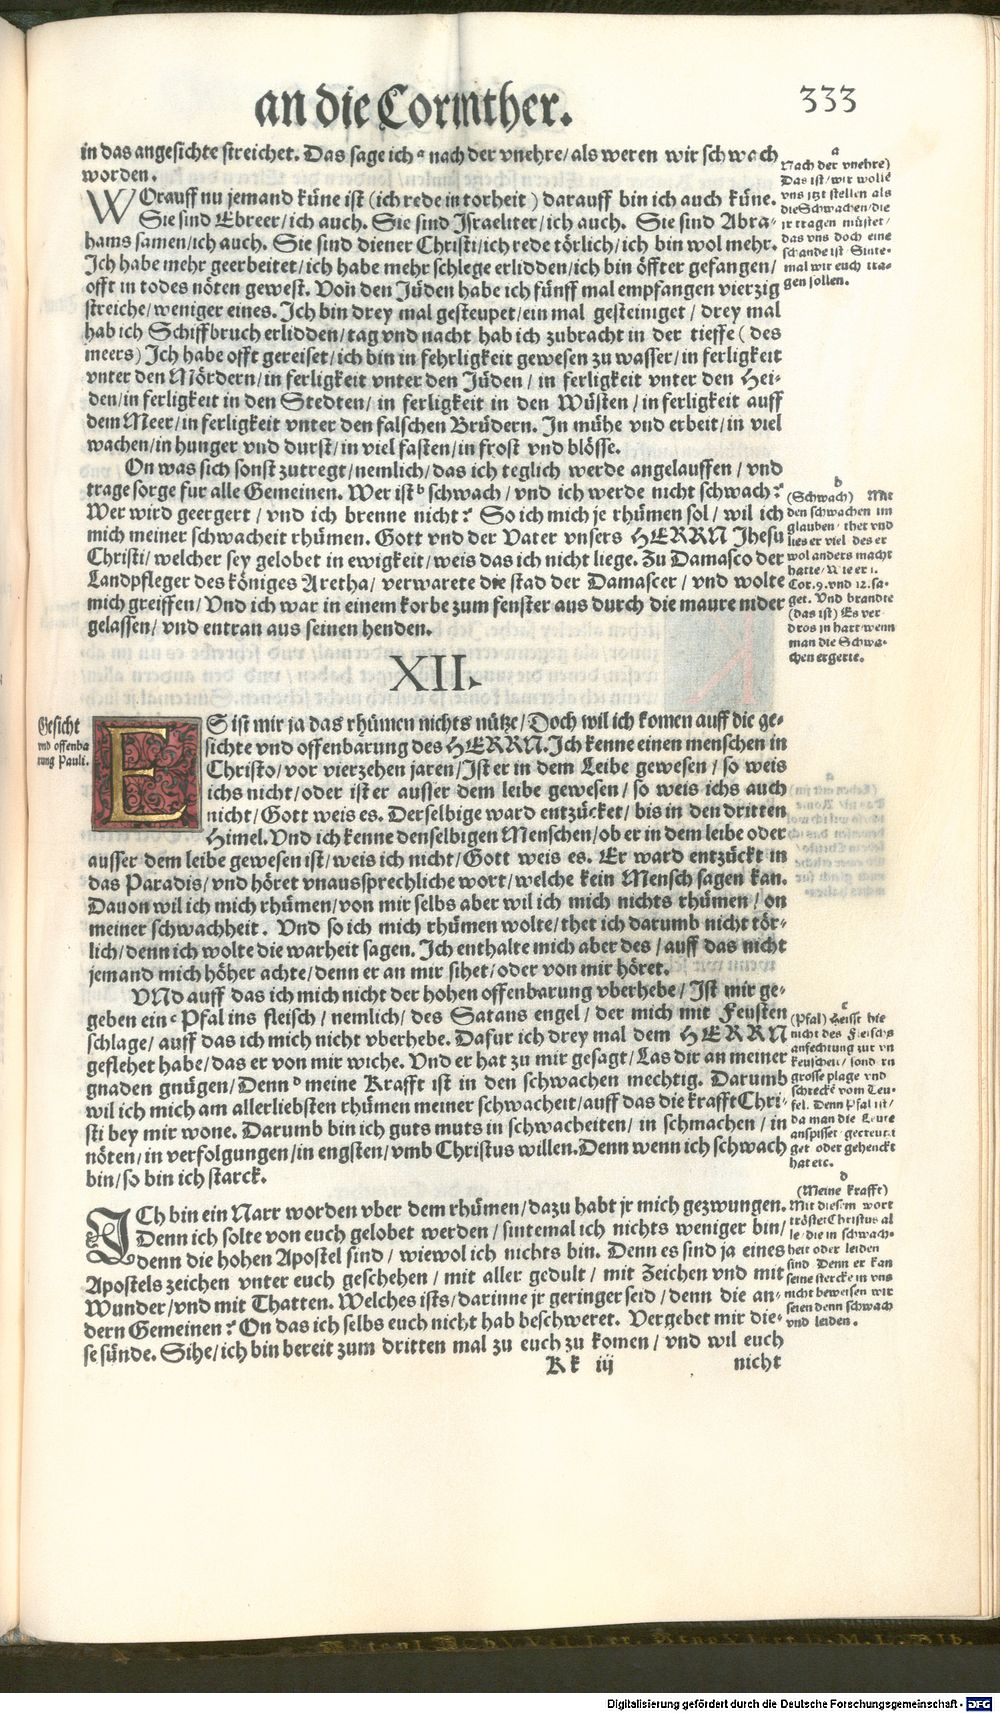 an die Corinther.
333
in das angesichte streichet. Das sage ich a nach der vnehre/ als weren wir schwach
worden.
WOrauff nu jemand küne ist (ich rede in torheit) darauff bin ich auch küne.
Sie sind Ebreer/ ich auch. Sie sind Israeliter/ ich auch. Sie sind Abra-
hams samen/ ich auch. Sie sind diener Christi/ ich rede törlich/ ich bin wol mehr.
Ich habe mehr geerbeitet/ ich habe mehr schlege erlidden/ ich bin öffter gefangen/
offt in todes nöten gewest. Von den Jüden habe ich fünff mal empfangen vierzig
streiche/ weniger eines. Ich bin drey mal gesteupet/ ein mal gesteiniget/ drey mal
hab ich Schiffbruch erlidden/ tag vnd nacht hab ich zubracht in der tieffe (des
meers) Ich habe offt gereiset/ ich bin in fehrligkeit gewesen zu wasser/ in ferligkeit
vnter den Mördern/ in ferligkeit vnter den Jüden/ in ferligkeit vnter den Hei-
den/ in ferligkeit in den Stedten/ in ferligkeit in den Wüsten/ in ferligkeit auff
dem Meer/ in ferligkeit vnter den falschen Brüdern. In mühe vnd erbeit/ in viel
wachen/ in hunger vnd durst/ in viel fasten/ in frost vnd blösse.
On was sich sonst zutregt/ nemlich/ das ich teglich werde angelauffen/ vnd
trage sorge fur alle Gemeinen. Wer ist b schwach/ vnd ich werde nicht schwach?
Wer wird geergert/ vnd ich brenne nicht? So ich mich je rhümen sol/ wil ich
mich meiner schwacheit rhümen. Gott vnd der Vater vnsers HERRN Jhesu
Christi/ welcher sey gelobet in ewigkeit/ weis das ich nicht liege. Zu Damasco der
Landpfleger des königes Aretha/ verwarete die stad der Damascer/ vnd wolte
mich greiffen/ Vnd ich war in einem korbe zum fenster aus durch die maure nider
gelassen/ vnd entran aus seinen henden.
a
Nach der vnehre)
Das ist/ wir wollē
vns itzt stellen als
die Schwachen/ die
jr tragen müstet/
das vns doch eine
schande ist Sinte-
mal wir euch tra-
gen sollen.
b
(Schwach) Mit
den schwachen im
glauben/ thet vnd
lies er viel des er
wol anders macht
hatte/ Wie er 1.
Cor. 9. vnd 12. sa-
get. Vnd brandte
(das ist) Es ver
dros in hart wenn
man die Schwa-
chen ergerte.
XII.
Gesicht
vnd offenba
rung Pauli.
ES ist mir ja das rhümen nichts nütze/ Doch wil ich komen auff die ge-
sichte vnd offenbarung des HERRN. Ich kenne einen menschen in
Christo/ vor vierzehen jaren/ Ist er in dem Leibe gewesen/ so weis
ichs nicht/ oder ist er ausser dem leibe gewesen/ so weis ichs auch
nicht/ Gott weis es. Derselbige ward entzücket/ bis in den dritten
Himel. Vnd ich kenne denselbigen Menschen/ ob er in dem leibe oder
ausser dem leibe gewesen ist/ weis ich nicht/ Gott weis es. Er ward entzückt in
das Paradis/ vnd höret vnaussprechliche wort/ welche kein Mensch sagen kan.
Dauon wil ich mich rhümen/ von mir selbs aber wil ich mich nichts rhümen/ on
meiner schwachheit. Vnd so ich mich rhümen wolte/ thet ich darumb nicht tör-
lich/ denn ich wolte die warheit sagen. Ich enthalte mich aber des/ auff das nicht
jemand mich höher achte/ denn er an mir sihet/ oder von mir höret.
VNd auff das ich mich nicht der hohen offenbarung vberhebe/ Ist mir ge-
geben ein c Pfal ins fleisch/ nemlich/ des Satans engel/ der mich mit Feusten
schlage/ auff das ich mich nicht vberhebe. Dafur ich drey mal dem HERRN
geflehet habe/ das er von mir wiche. Vnd er hat zu mir gesagt/ Las dir an meiner
gnaden gnügen/ Denn d meine Krafft ist in den schwachen mechtig. Darumb
wil ich mich am allerliebsten rhümen meiner schwacheit/ auff das die krafft Chri-
sti bey mir wone. Darumb bin ich guts muts in schwacheiten/ in schmachen/ in
nöten/ in verfolgungen/ in engsten/ vmb Christus willen. Denn wenn ich schwach
bin/ so bin ich starck.
c
(Pfal) Heisst hie
nicht des Fleischs
anfechtung zur vn
keuscheit/ sond' ein
grosse plage vnd
schreckē vom Teu-
fel. Denn Pfal ist/
da man die Leute
anspisset/ gecreutzi
get oder gehenckt
hat etc.
d
(Meine krafft)
Mit diesem wort
tröstet Christus al
le/ die in schwach-
heit oder leiden
sind Denn er kan
seine stercke in vns
nicht beweisen wir
seien denn schwach
vnd leiden.
ICh bin ein Narr worden vber dem rhümen/ dazu habt jr mich gezwungen.
Denn ich solte von euch gelobet werden/ sintemal ich nichts weniger bin/
denn die hohen Apostel sind/ wiewol ich nichts bin. Denn es sind ja eines
Apostels zeichen vnter euch geschehen/ mit aller gedult/ mit Zeichen vnd mit
Wunder/ vnd mit Thatten. Welches ists/ darinne jr geringer seid/ denn die an-
dern Gemeinen? On das ich selbs euch nicht hab beschweret. Vergebet mir die-
se sünde. Sihe/ ich bin bereit zum dritten mal zu euch zu komen/ vnd wil euch
Kk iij nicht
Digitalisierung gefördert durch die Deutsche Forschungsgemeinschaft - DFG